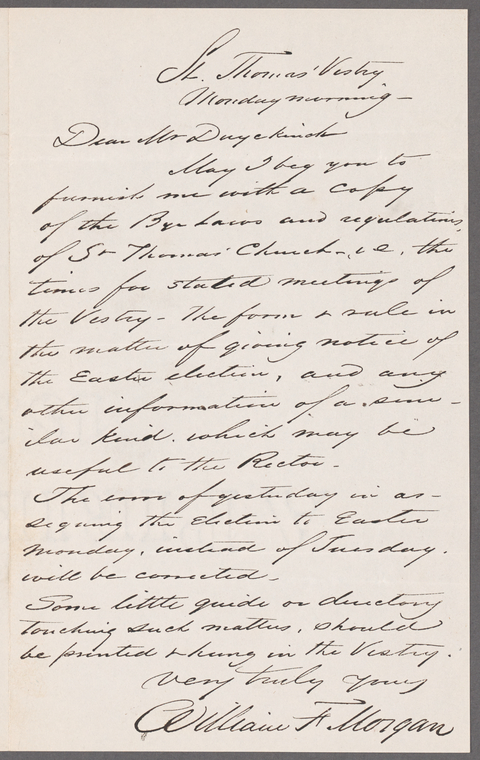 St. Thomas' Vestry
Monday morning -
Dear Mr Duyckinck
May I beg you to
furnish me with a copy
of the Bye Laws and regulations,
of St Thomas' Church, i.e. the
times for stated meetings of
the Vestry - the form & rule in
the matter of giving notice of
the Easter election, and any
other information of a sim-
ilar kind. which may be
useful to the Rector.
The error of yesterday in as-
signing the Election to Easter
Monday, instead of Tuesday.
will be corrected.
Some little guide or directory
touching such matters, should
be printed & hung in the Vestry.
very truly yours
William F Morgan